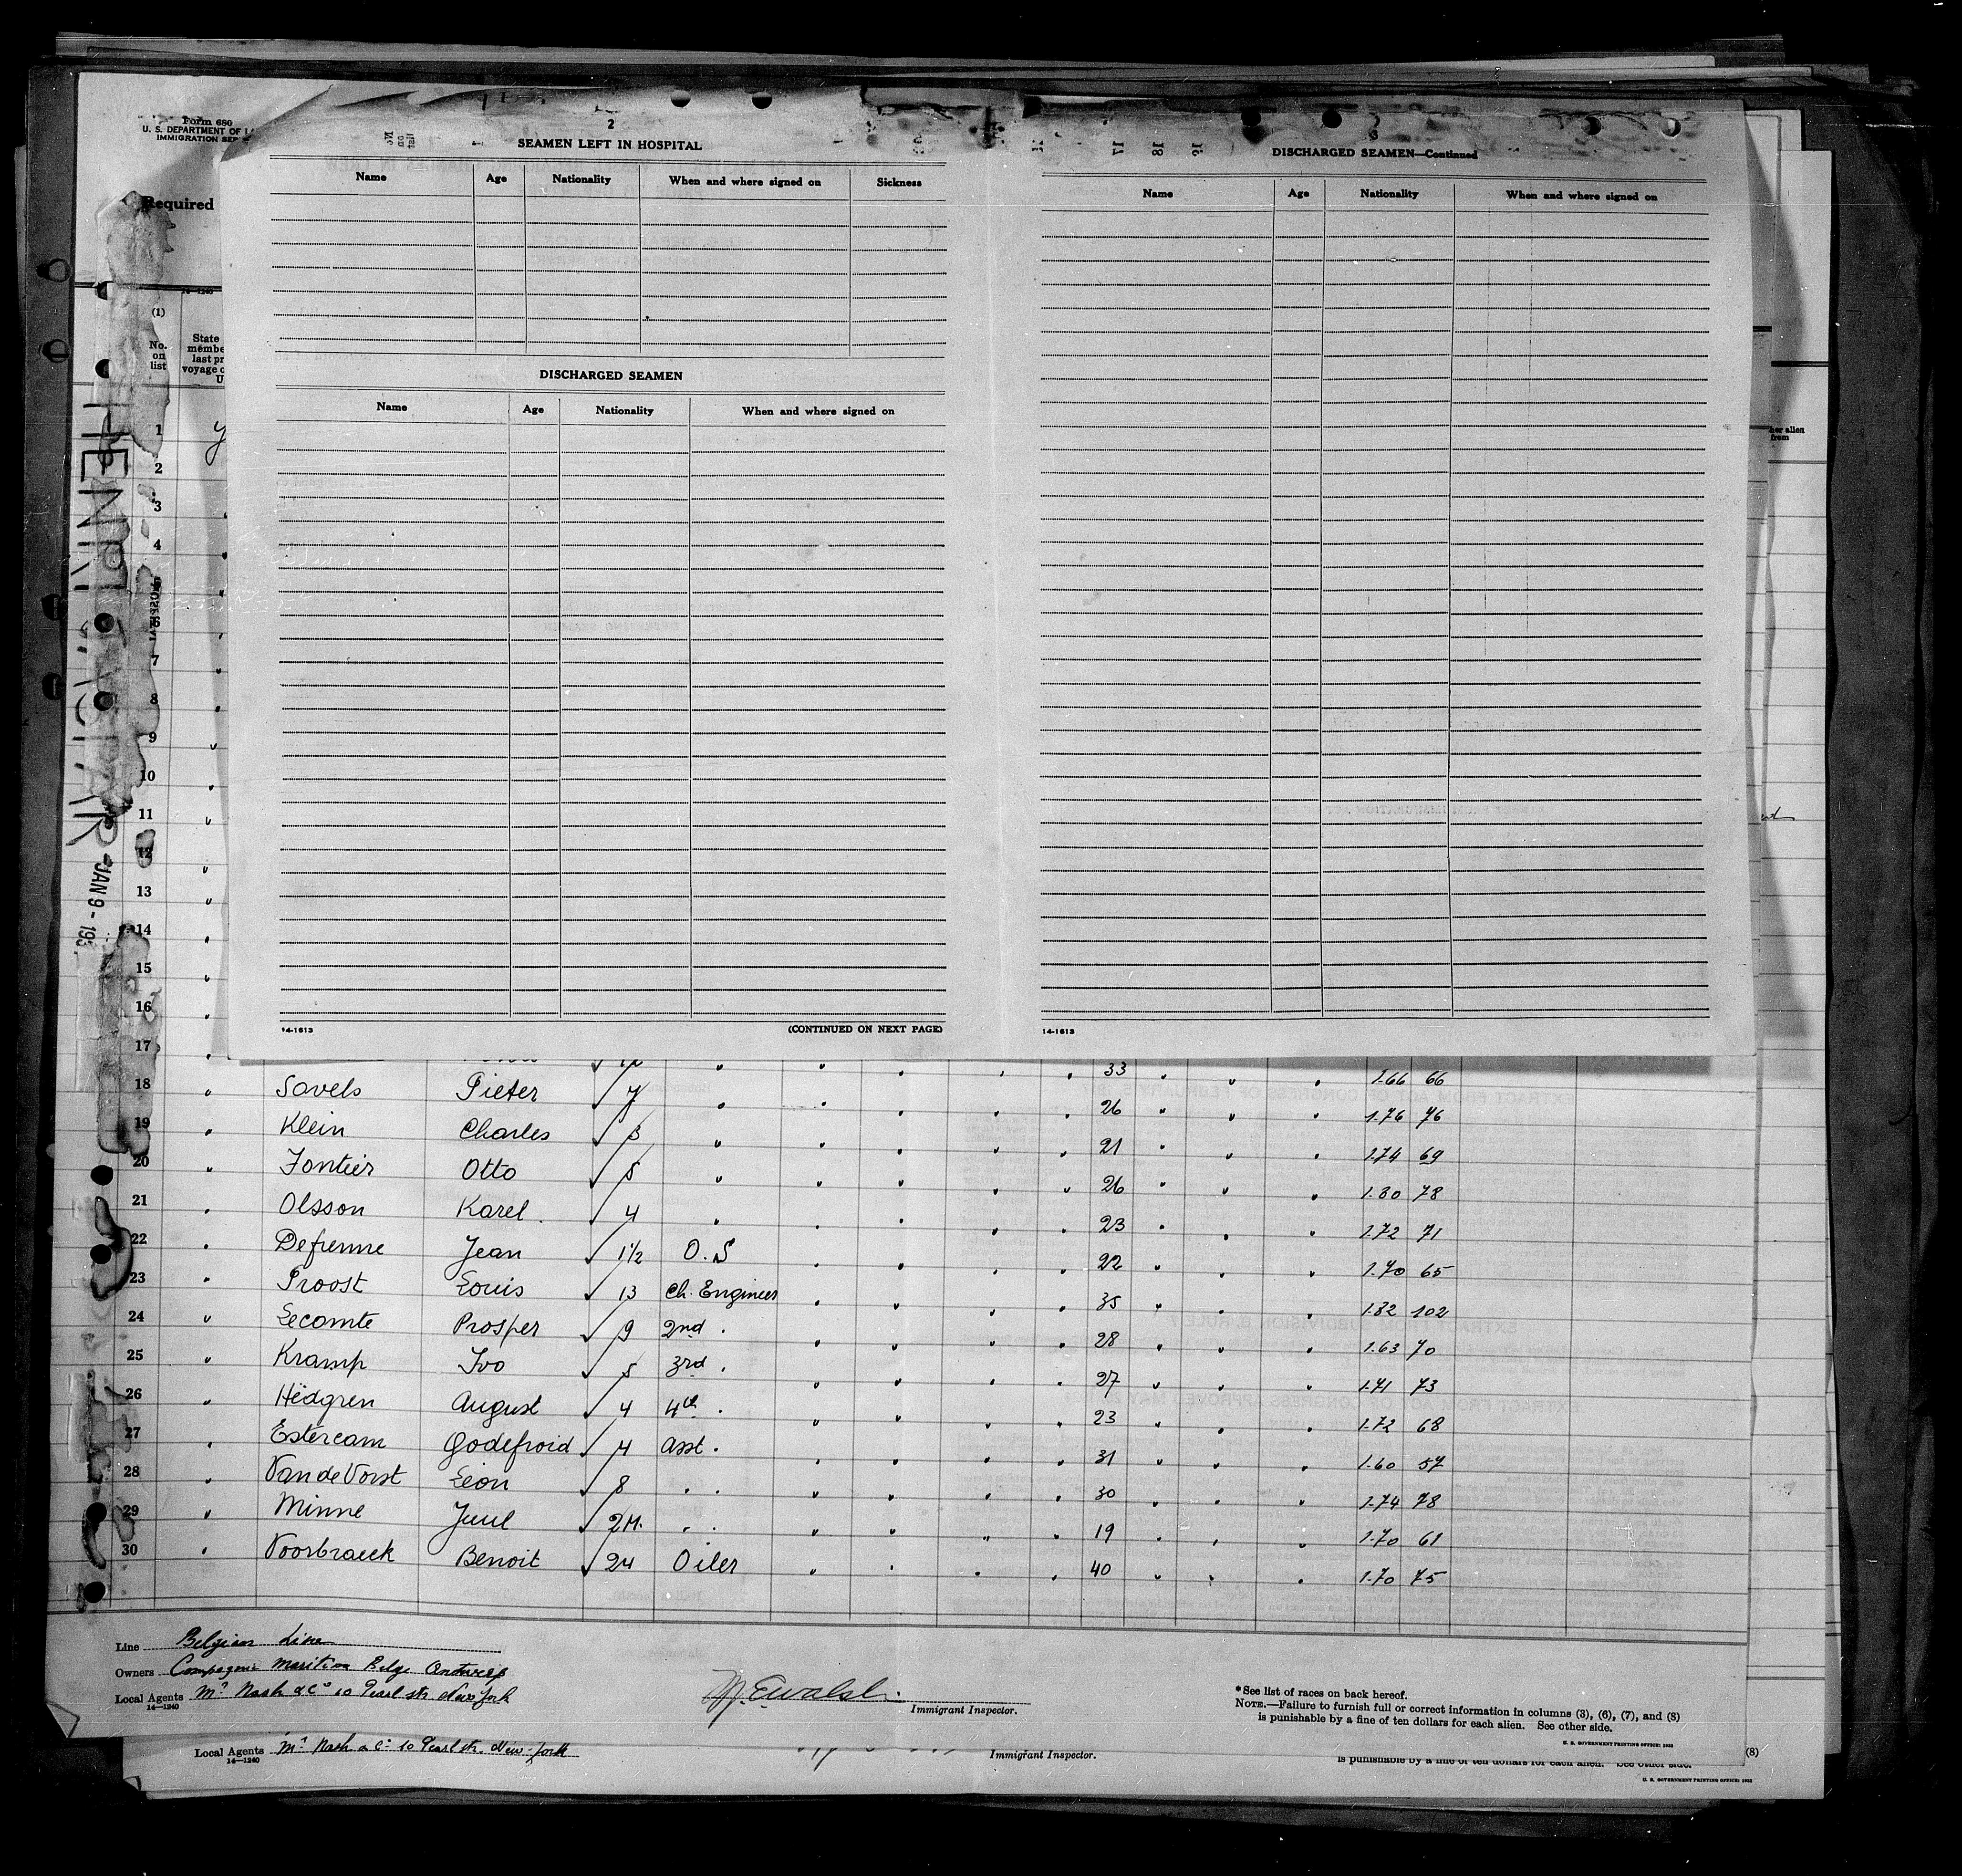 Form 680
U. S. DEPARTMENT OF
IMMIGRATION
Required
14-1240
(1)
No.
on
list
State
last
voyage
HENRI JASPAR
JAN 9 - 193
2
SEAMEN LEFT IN HOSPITAL
Name Age Nationality When and where signed on Sickness
DISCHARGED SEAMEN
Name Age Nationality When and where signed on
14-1613 (CONTINUED ON NEXT PAGE)
3
DISCHARGED SEAMEN—Continued
Name Age Nationality When and where signed on
14-1613
her alien
from
1
2
3
4
6
7
8
9
10
11
12
13
14
15
16
17 33 1.66 66
18 " Savels Pieter √ 7 " " " " " 26 " " " 1.76 76
19 " Klein Charles √ 3 " " " " " 21 " " " 1.74 69
20 " Fontier Otto √ 5 " " " " " 26 " " " 1.80 78
21 " Olsson Karel √ 4 " " " " " 23 " " " 1.72 71
22 " Defrenne Jean √ 1½ O.S " " " " 22 " " " 1.70 65
23 " Proost Louis √ 13 Ch. Engineer " " " " 35 " " " 1.82 102
24 " Lecomte Prosper √ 9 2nd " " " " " 28 " " " 1.63 70
25 " Kramp Ivo √ 5 3rd " " " " " 27 " " " 1.71 73
26 " Hedgren August √ 4 4th " " " " " 23 " " " 1.72 68
27 " Estercam Godefroid √ 4 Asst. " " " " 31 " " " 1.60 57
28 " Van de Vorst Leon √ 8 " " " " " " 30 " " " 1.74 78
29 " Minne Juul √ 2M. " " " " " " 19 " " " 1.70 61
30 " Voorbraeck Benoit √ 24 Oiler " " " " 40 " " " 1.70 75
Line Belgian Line
Owners Compagnie Maritime Belge Antwerp
Local Agents Mrs Nash & Co 10 Pearl str. New York
14—1240
Immigrant Inspector.
*See list of races on back hereof.
NOTE.—Failure to furnish full or correct information in columns (3), (6), (7), and (8)
is punishable by a fine of ten dollars for each alien. See other side.
U. S. GOVERNMENT PRINTING OFFICE: 1932
Local Agents Mrs Nash & Co 10 Pearl str. New-York
14—1240
Immigrant Inspector.
(8)
is punishable by a fine of ten dollars for each alien. See other side.
U. S. GOVERNMENT PRINTING OFFICE: 1932